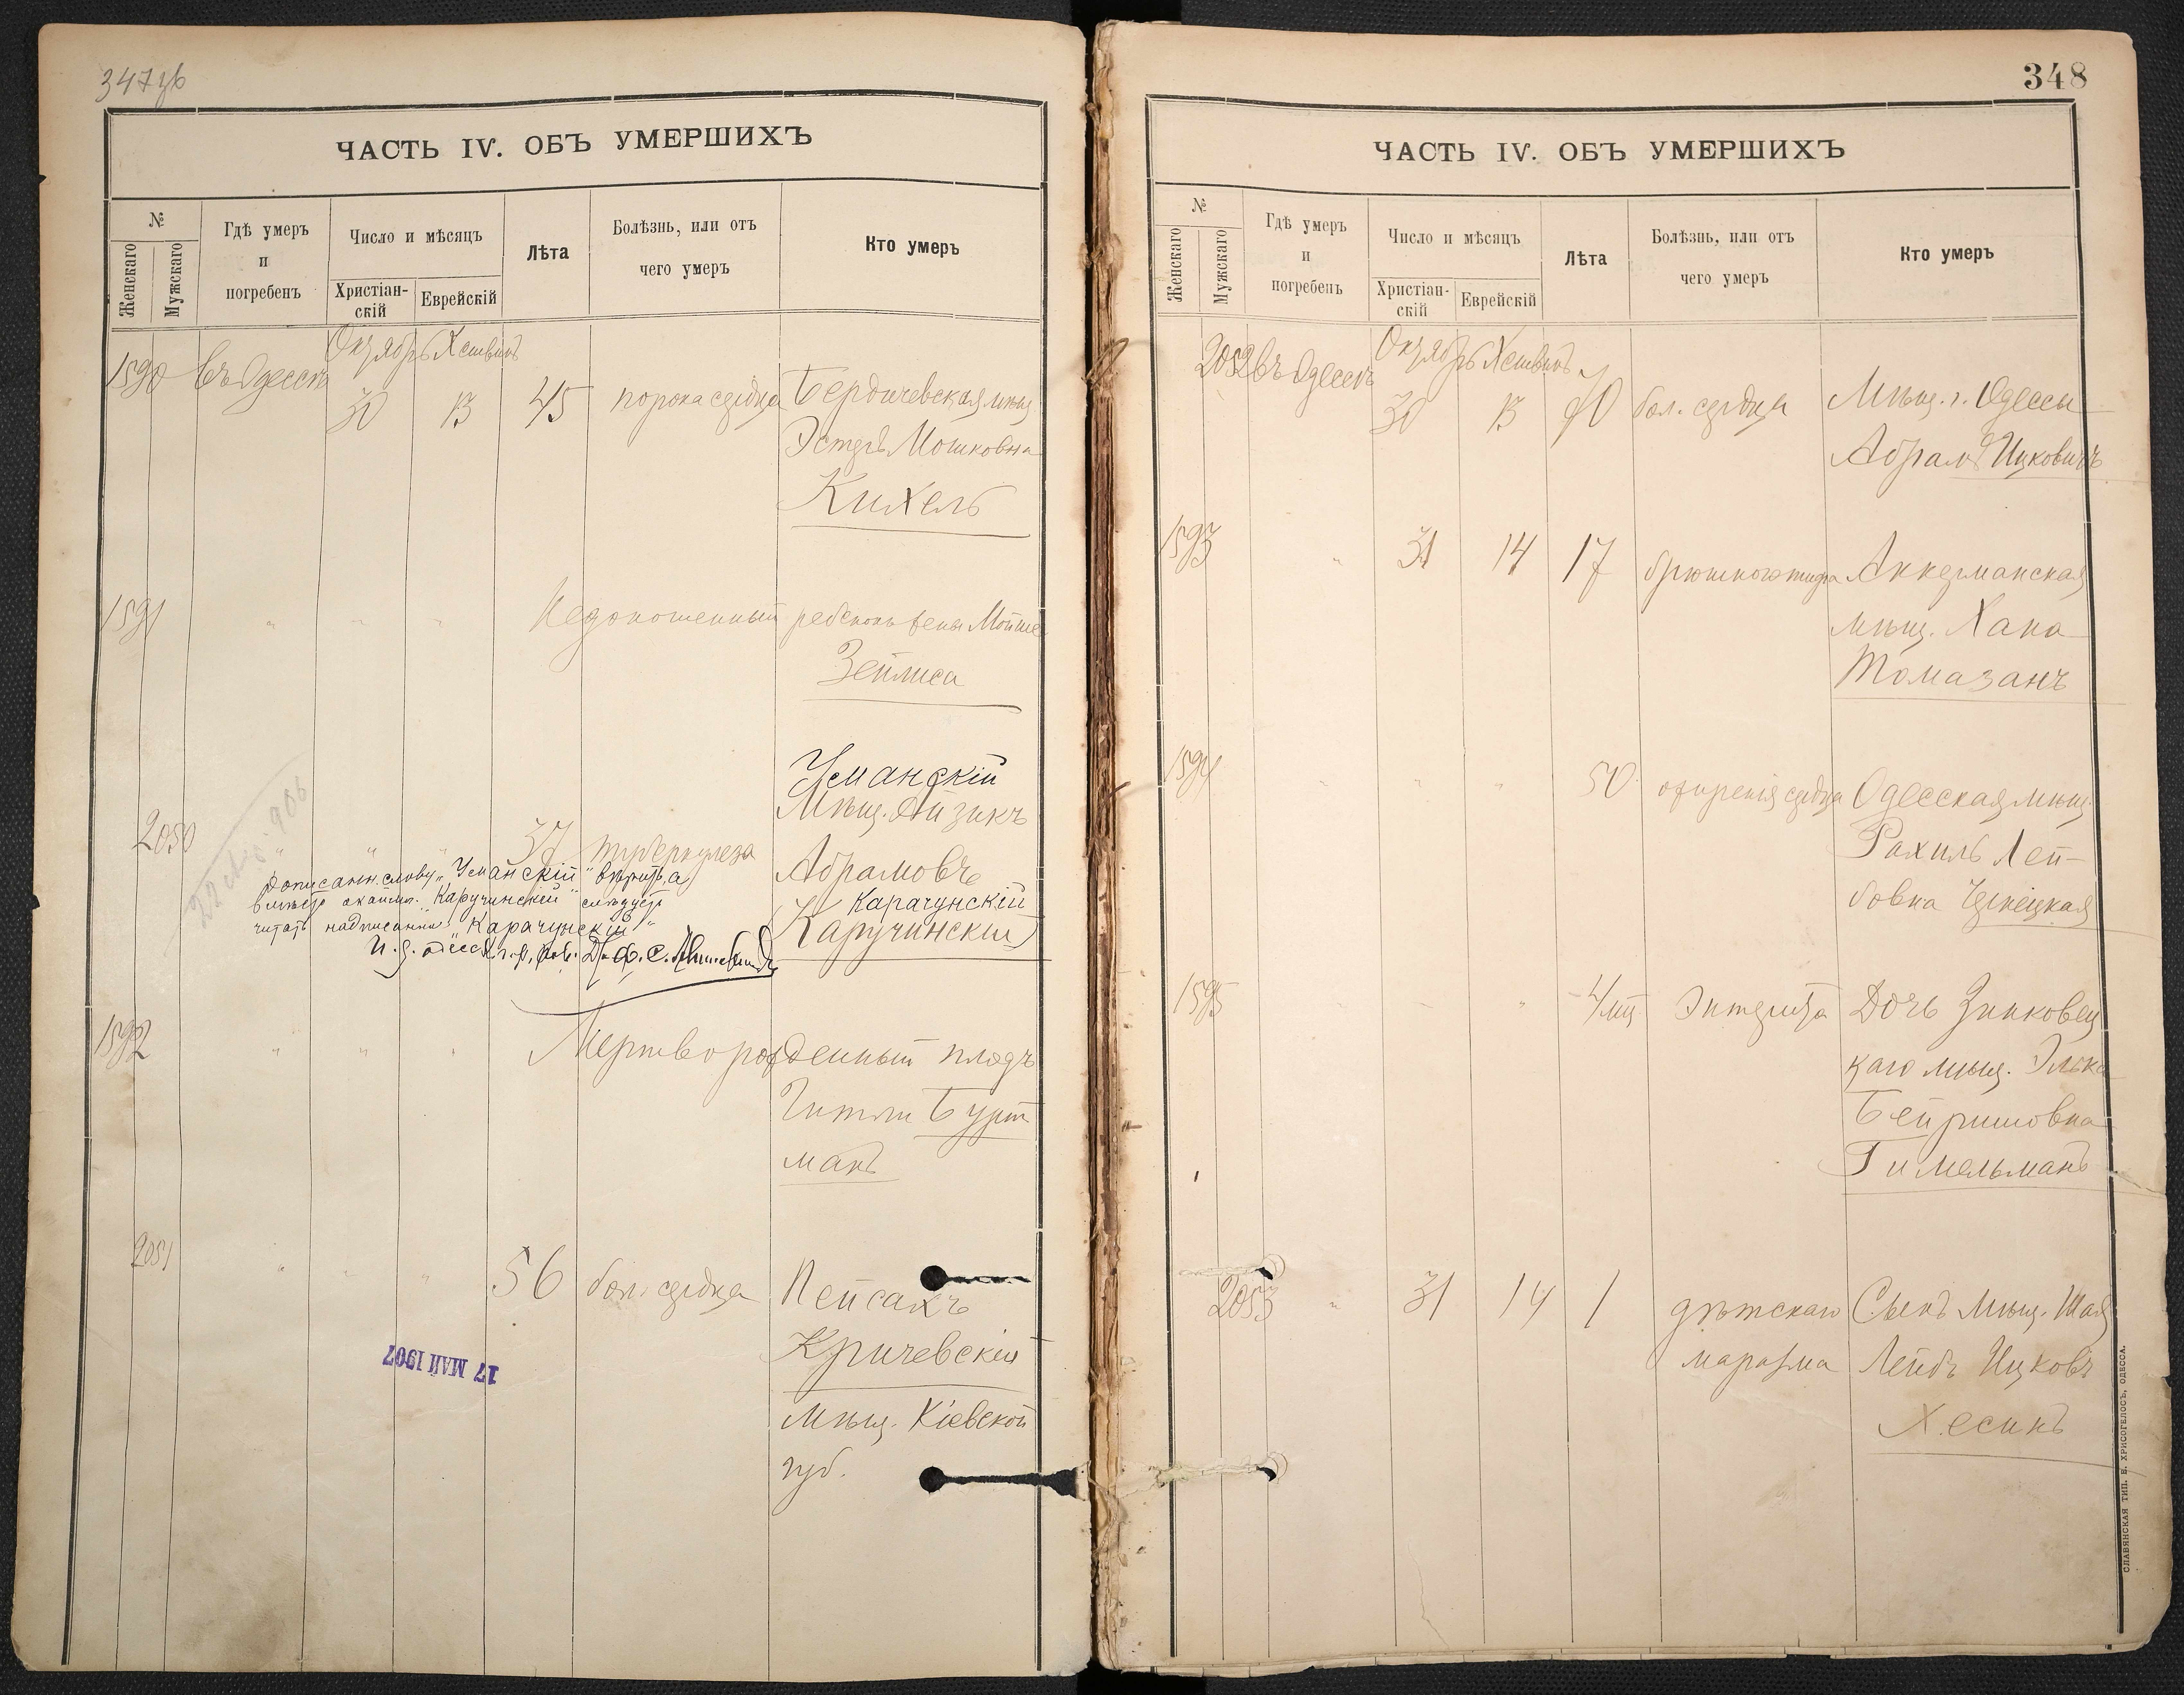 347об
ЧАСТЬ IV. ОБЪ УМЕРШИХЪ
№
Женскаго
Мужскаго
Гдѣ умеръ
и
погребенъ
Число и мѣсяцъ
Христіан-
скій
Еврейскій
Лѣта
Болѣзнь, или отъ
чего умеръ
Кто умеръ
Октябрь Хешванъ
1590 въ Одессѣ 30 13 45 порока сердца Бердичевская мѣщ.
Эстеръ Мошковна
Кихель
1591 " " " Недоношенный ребенокъ жены Мойше
Зейлиса
Уманскій
2050 " " " 37 туберкулеза Мѣщ. Айзикъ
Абрамовъ
Карачунскій
(Каручинскій)
Дописанн. слову "Уманскій" вѣрить, а
вмѣсто окаймл. "Каручинскій" слѣдуетъ
читать надписанный "Карачунскій"
И. д. одесск. г. р.
22 906
1592 " " " Мертворожденный плодъ
Гитли Бурт
манъ
2051 " " " 56 бол. сердца Пейсахъ
Кричевскій
мѣщ. Кіевской
губ.
17 МАЙ 1907
348
ЧАСТЬ IV. ОБЪ УМЕРШИХЪ
№
Женскаго
Мужскаго
Гдѣ умеръ
и
погребенъ
Число и мѣсяцъ
Христіан-
скій
Еврейскій
Лѣта
Болѣзнь, или отъ
чего умеръ
Кто умеръ
Октябрь Хешванъ
2052 въ Одессѣ 30 13 40 бол. сердца Мѣщ. г. Одессы
Абрамъ Ицковичъ
1593 " 31 14 17 брюшного тифа Аккерманская
мѣщ. Хана
Томазанъ
1594 " " " 50 ожирения сердца Одесская мѣщ.
Рахиль Лей-
бовна
1595 " " " 4 мц Энтерита Дочь Зинковец
каго мѣщ. Элька
Бейришовна
Гимельманъ
2053 " 31 14 1 дѣтскаго Сынъ мѣщ. Шая
маразма Лейбъ Ицковъ
Хесинъ
СЛАВЯНСКАЯ ТИП. Е. ХРИСОГЕЛОСЪ, ОДЕССА.